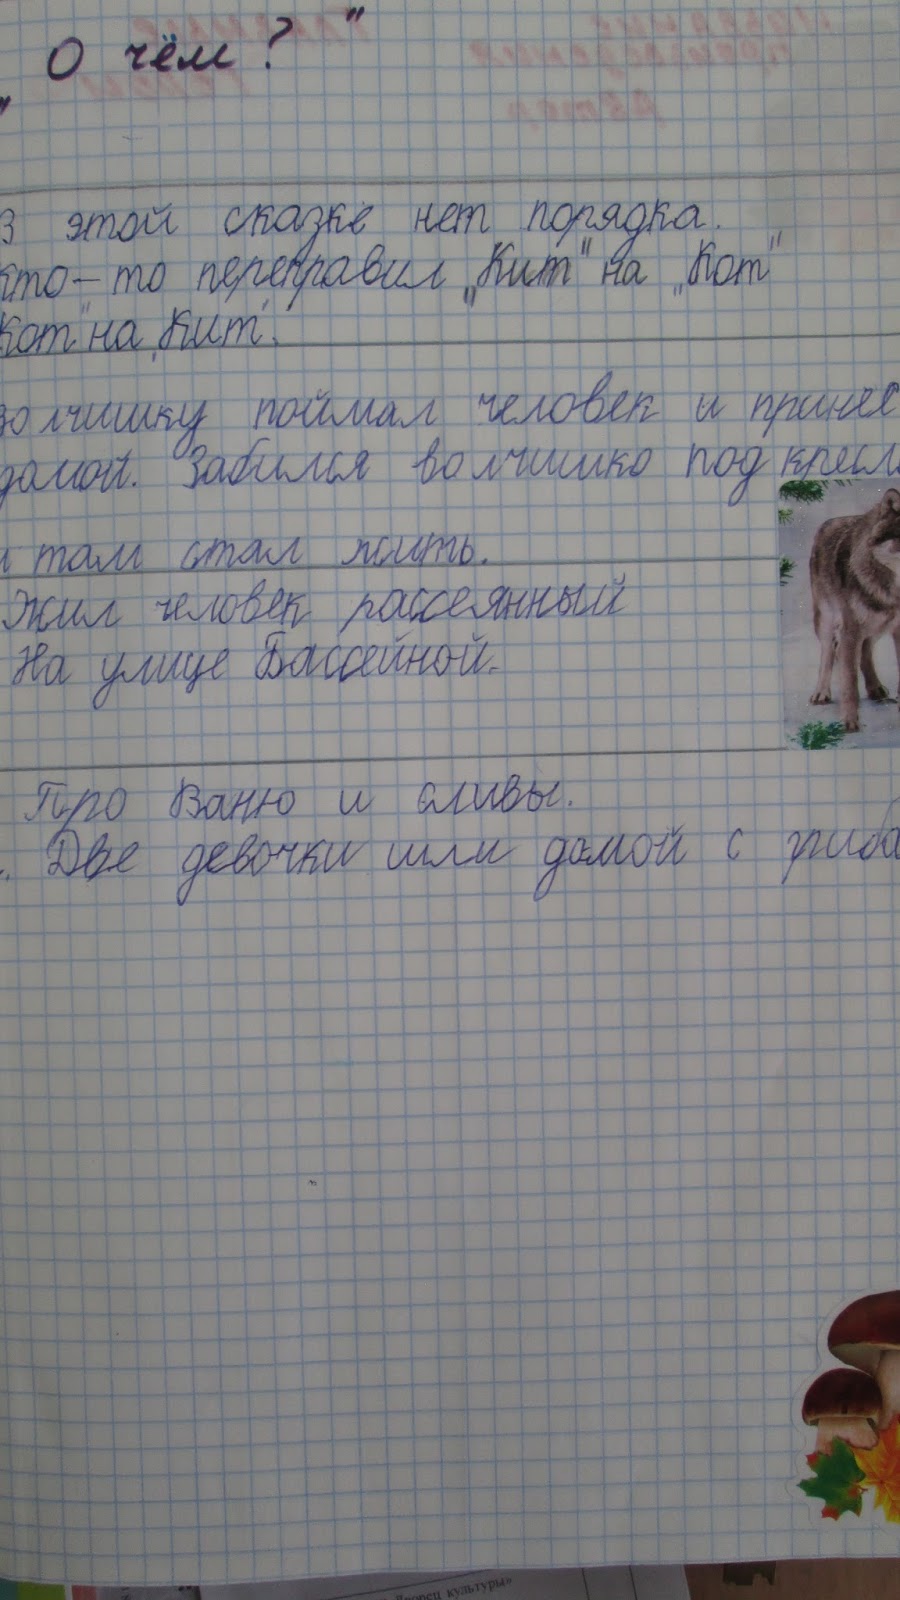 О чём?"
"
В этой сказке нет порядка.
кто-то переправил „Кит" на „Кот"
Кот" на „Кит".
волчишку поймал человек и принёс
домой. Забился волчишко под кресл
и там стал жить.
Жил человек рассеянный
На улице Бассейной.
Про Ваню и сливы.
. Две девочки шли домой с гриба
Дворец культуры»